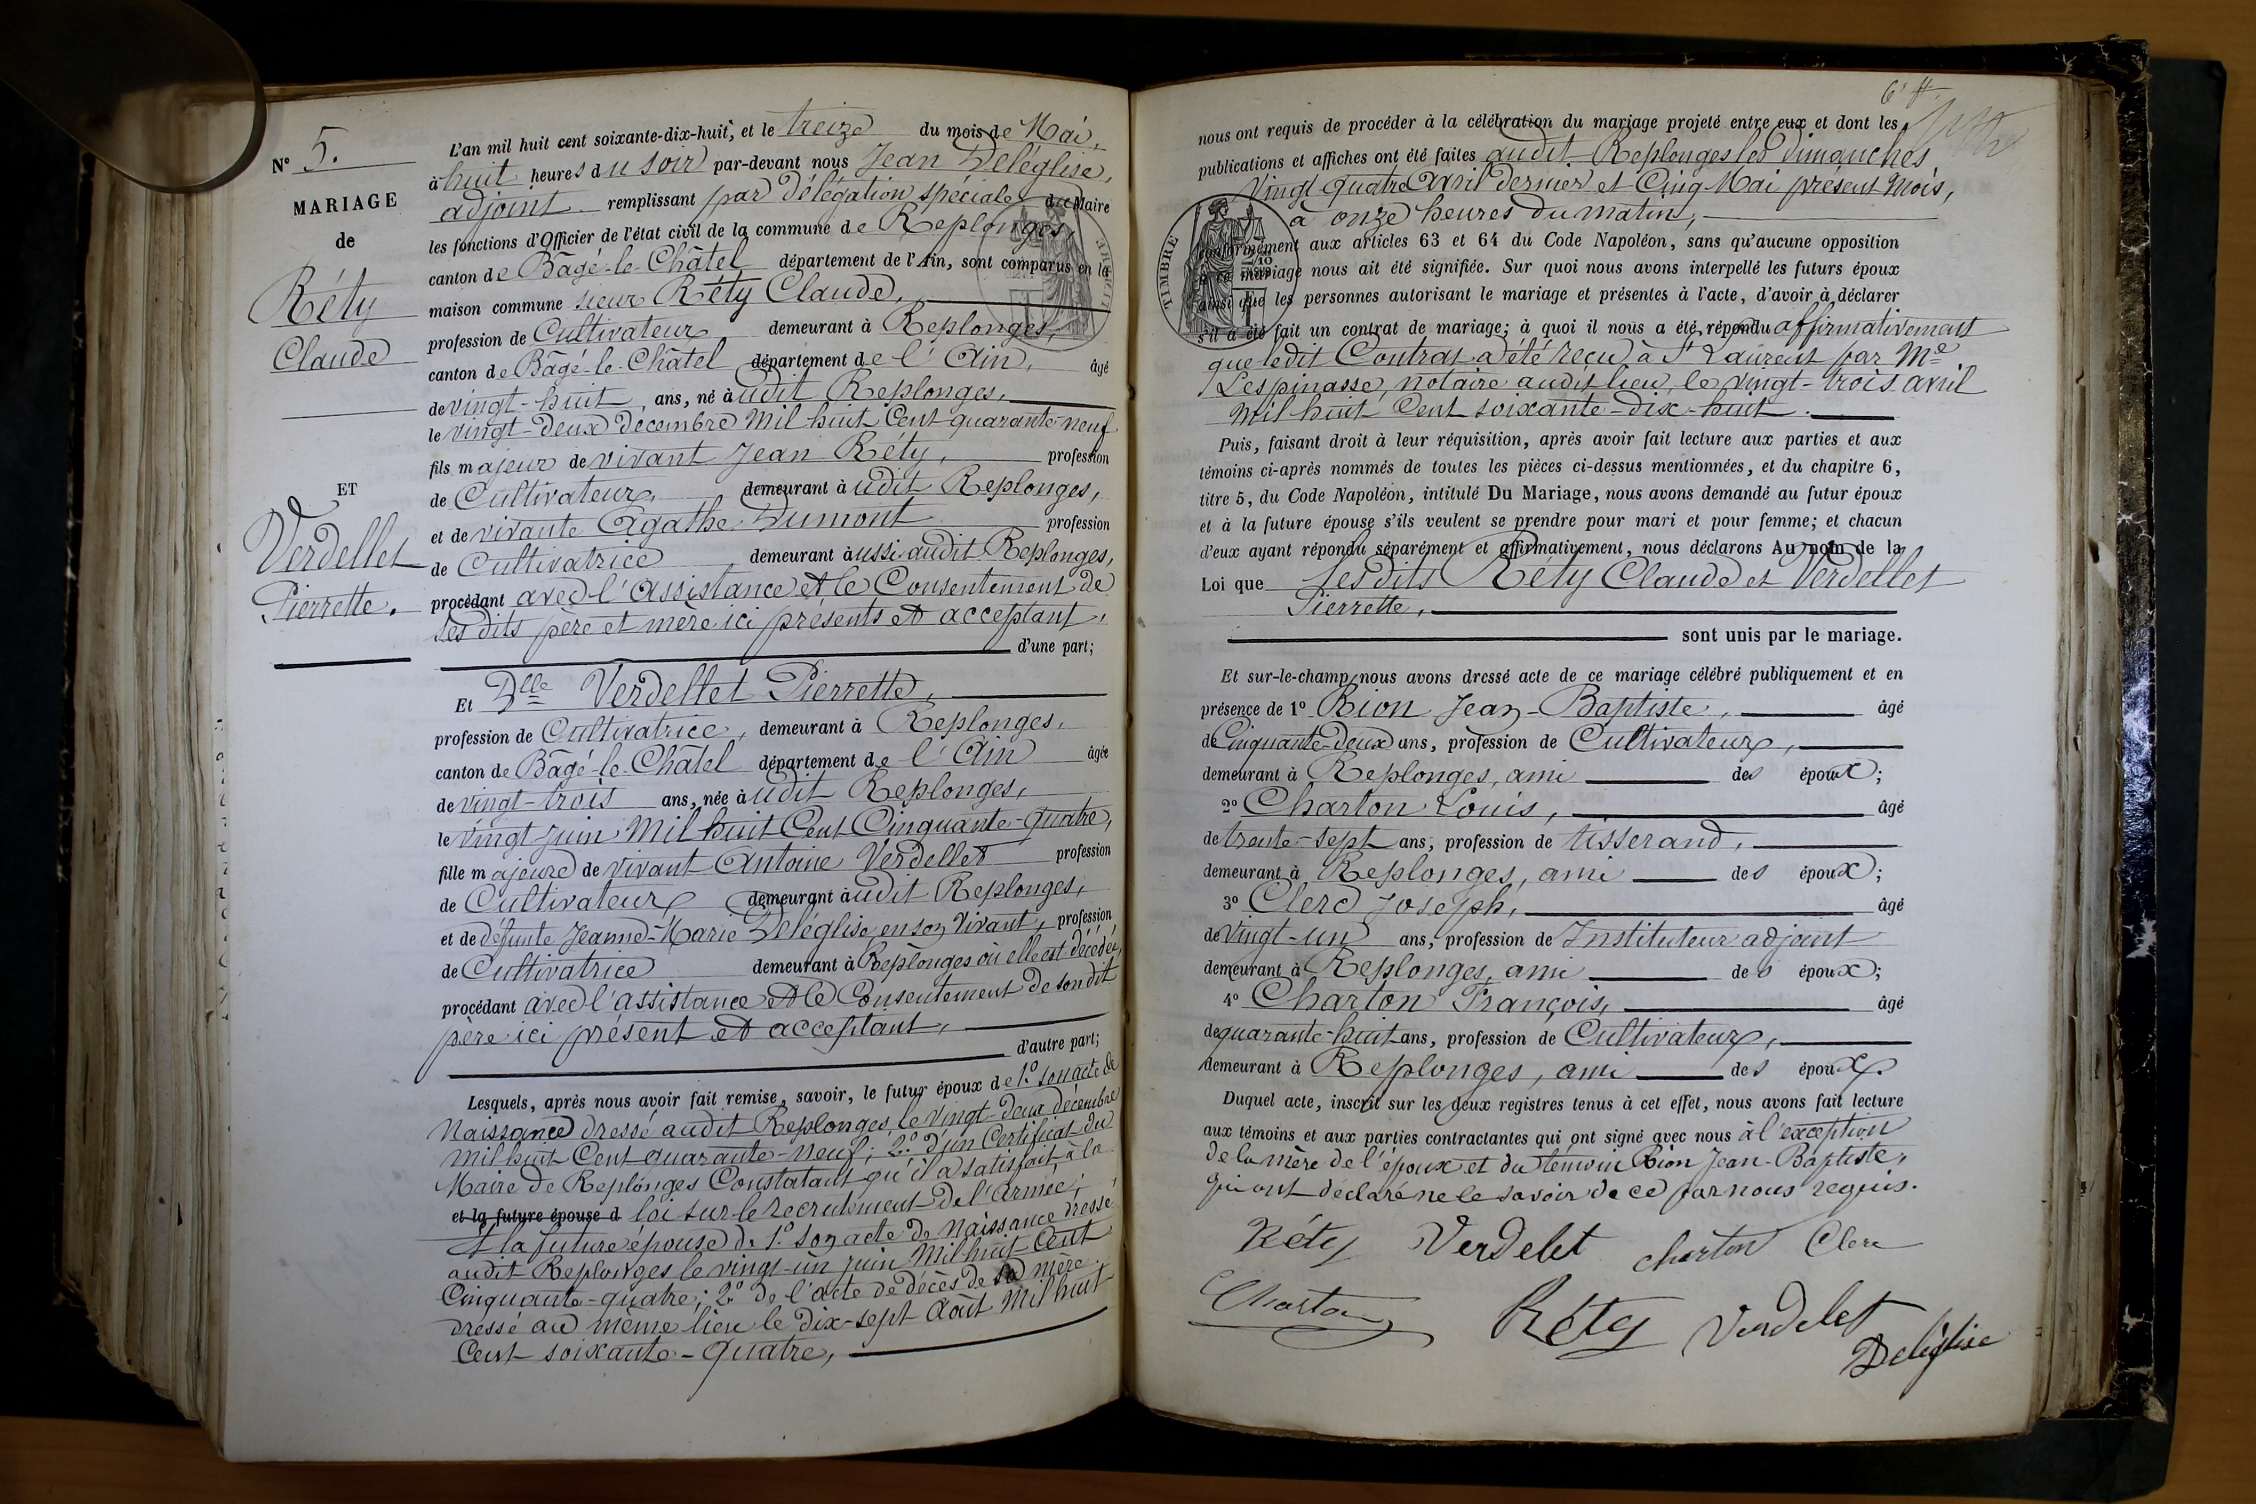 N° 5.
MARIAGE
de
Réty
Claude
ET
Verdellet
Pierrette.
L'an mil huit cent soixante-dix-huit, et le treize du mois de Mai,
à huit heures du soir par-devant nous Jean Deléglise,
adjoint remplissant par délégation spéciale du Maire
les fonctions d'Officier de l'état civil de la commune de Replonges,
canton de Bâgé-le-Châtel département de l'Ain, sont comparus en la
maison commune sieur Réty Claude,
profession de Cultivateur demeurant à Replonges,
canton de Bâgé-le-Châtel département de l'Ain, âgé
de vingt-huit ans, né à udit Replonges,
le vingt-deux décembre mil huit Cent quarante-neuf
fils majeur de vivant Jean Réty, profession
de Cultivateur, demeurant à udit Replonges,
et de vivante Agathe Dumont profession
de Cultivatrice demeurant àussi audit Replonges,
procèdant avec l'assistance et le Consentement de
ses dits père et mère ici présents et acceptant,
d'une part;
Et Dlle Verdellet Pierrette,
profession de Cultivatrice, demeurant à Replonges,
canton de Bâgé-le-Châtel département de l'Ain âgée
de vingt-trois ans, née à udit Replonges,
le vingt juin mil huit Cent Cinquante-quatre,
fille majeure de vivant Antoine Verdellet profession
de Cultivateur, demeurant à udit Replonges,
et de défunte Jeanne-Marie Deléglise, en son vivant, profession
de Cultivatrice demeurant à Replonges où elle est décédée,
procédant avec l'assistance et le Consentement de son dit
père ici présent et acceptant,
d'autre part;
Lesquels, après nous avoir fait remise, savoir, le futur époux de 1.° son acte de
Naissance dressé audit Replonges, le vingt-deux décembre
mil huit Cent quarante-neuf; 2.° d'un Certificat du
Maire de Replonges Constatant qu'il a satisfait à la
et la future épouse d loi sur le recrutement de l'Armée;
Et la future épouse de 1.° son acte de Naissance dressé
audit Replonges le vingt-un juin mil huit Cent
Cinquante-quatre; 2.° de l'acte de décès de sa mère
dressé au même lieu le dix-sept Août mil huit
Cent soixante-quatre,
nous ont requis de procéder à la célébration du mariage projeté entre eux et dont les
publications et affiches ont été faites audit Replonges les dimanches
Vingt quatre Avril dernier et Cinq Mai présent mois,
à onze heures du matin,
TIMBRE
conformément aux articles 63 et 64 du Code Napoléon, sans qu'aucune opposition
à ce mariage nous ait été signifiée. Sur quoi nous avons interpellé les futurs époux
ainsi que les personnes autorisant le mariage et présentes à l'acte, d'avoir à déclarer
s'il a été fait un contrat de mariage; à quoi il nous a été répondu affirmativement
que ledit Contrat a été reçu à St Laurent par Me
Lespinasse, notaire audit lieu, le vingt-trois avril
mil huit Cent soixante-dix-huit.
Puis, faisant droit à leur réquisition, après avoir fait lecture aux parties et aux
témoins ci-après nommés de toutes les pièces ci-dessus mentionnées, et du chapitre 6,
titre 5, du Code Napoléon, intitulé Du Mariage, nous avons demandé au futur époux
et à la future épouse s'ils veulent se prendre pour mari et pour femme; et chacun
d'eux ayant répondu séparément et affirmativement, nous déclarons Au nom de la
Loi que Lesdits Réty Claude et Verdellet
Pierrette,
sont unis par le mariage.
Et sur-le-champ, nous avons dressé acte de ce mariage célébré publiquement et en
présence de 1° Bion Jean-Baptiste, âgé
de Cinquante-deux ans, profession de Cultivateur,
demeurant à Replonges, ami des époux;
2° Charton Louis, âgé
de trente-sept ans, profession de tisserand,
demeurant à Replonges, ami des époux;
3° Clerc Joseph, âgé
de vingt-un ans, profession de Instituteur adjoint
demeurant à Replonges, ami des époux;
4° Charton François, âgé
de quarante-huit ans, profession de Cultivateur,
demeurant à Replonges, ami des époux.
Duquel acte, inscrit sur les deux registres tenus à cet effet, nous avons fait lecture
aux témoins et aux parties contractantes qui ont signé avec nous à l'exception
de la mère de l'époux et du témoin Bion Jean-Baptiste,
qui ont déclaré ne le savoir de ce par nous requis.
Réty Verdelet charton Clerc
Charton Réty Verdelet
Deléglise